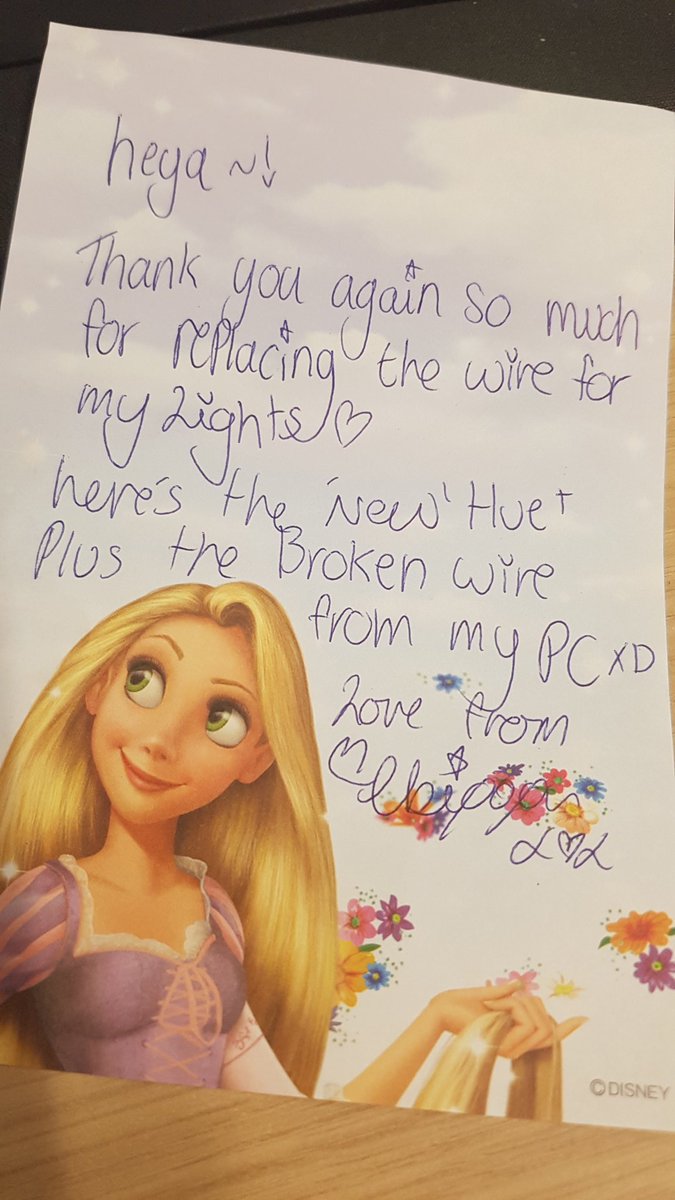 heya ~!
Thank you again so much
for replacing the wire for
my Lights ♡
here's the 'New' Hue +
Plus the Broken wire
from my PC XD
Love from
♡
x♡x
©DISNEY